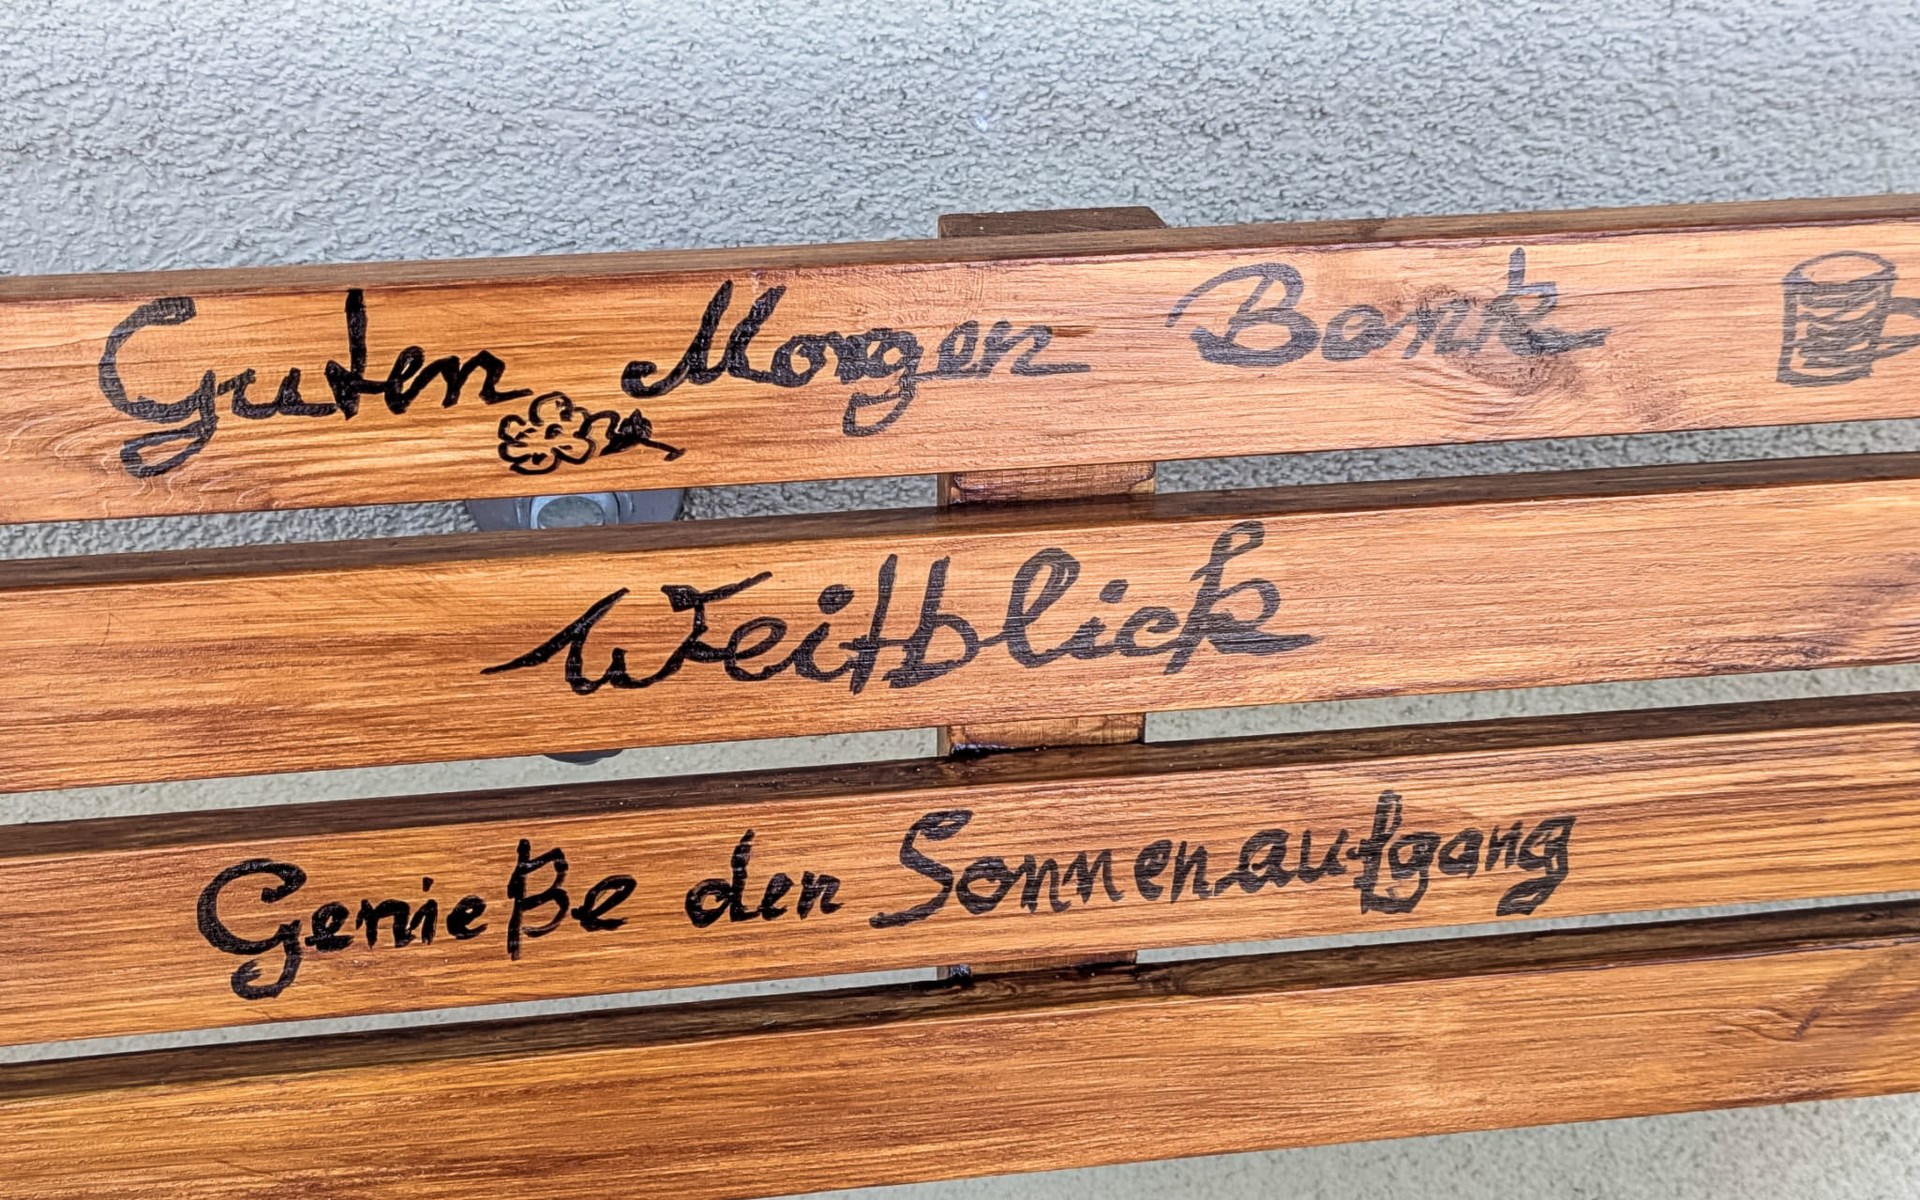 Guten Morgen Bank
Weitblick
Genieße den Sonnenaufgang